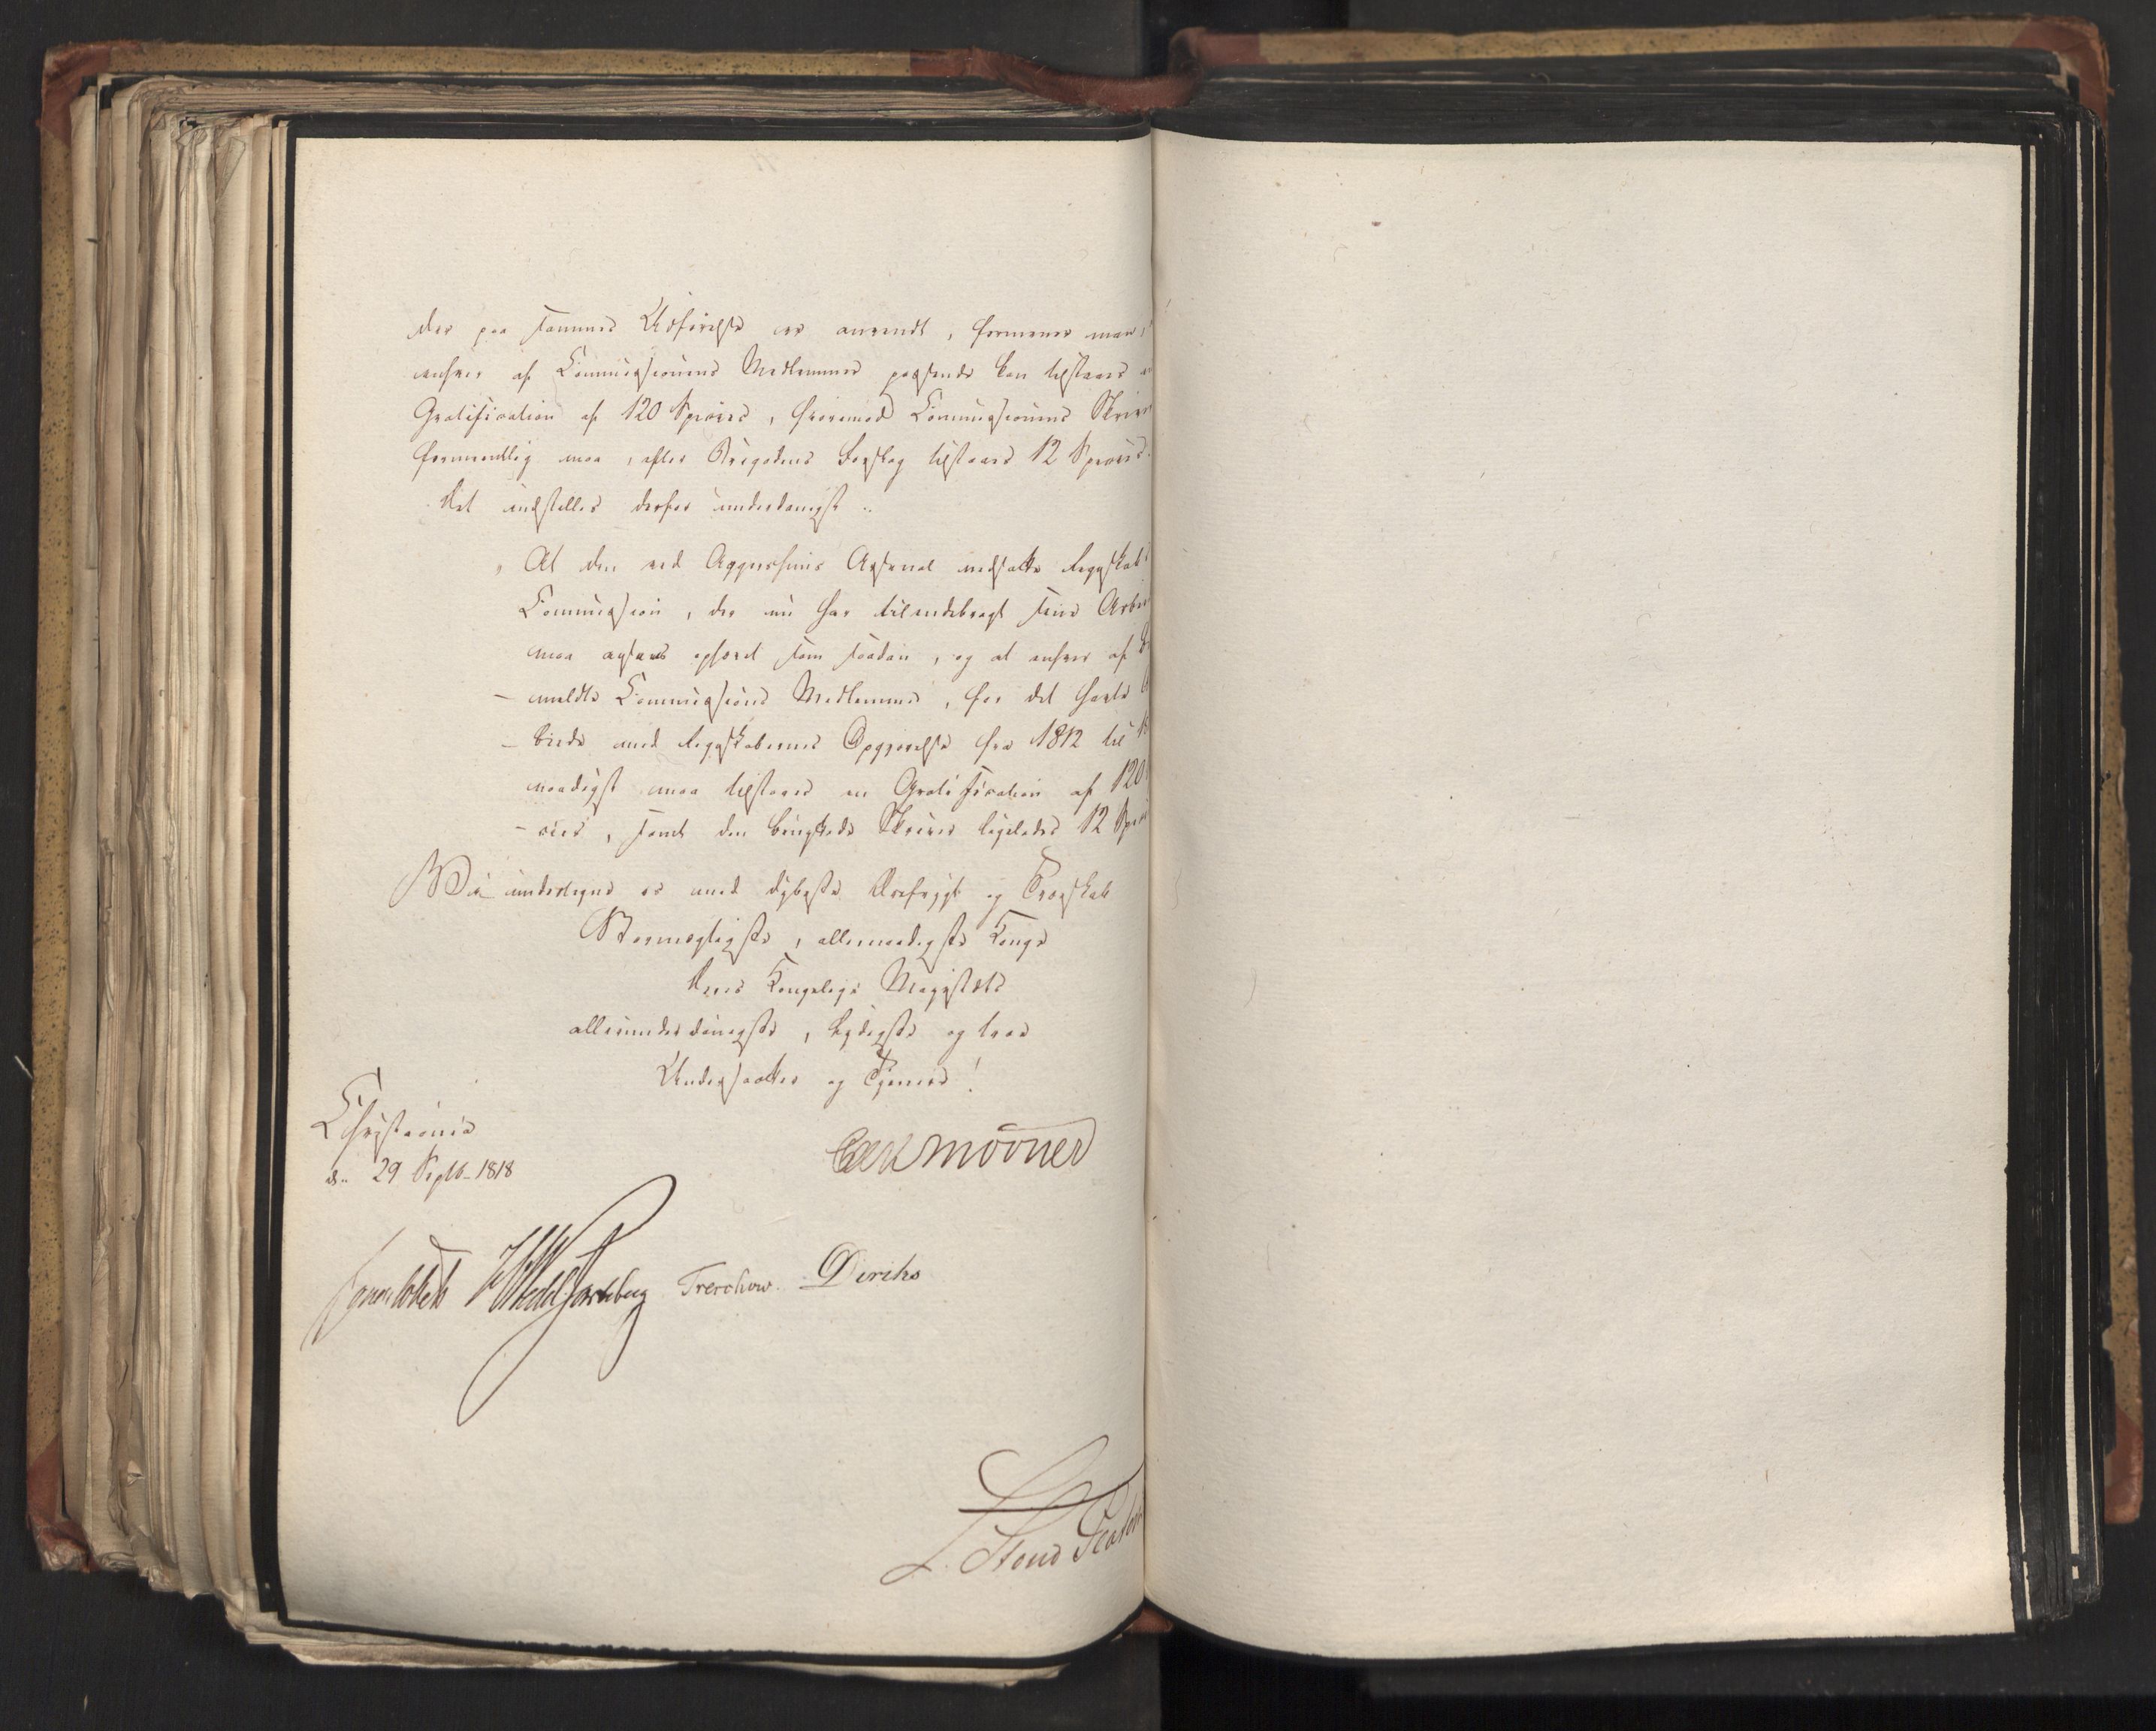 der paa sammes Udførelse er anvendt, formener man,
enhver af Commissionens Medlemmer passende kan tilstaaes en
Gratification af 120 Species, hvorimod Commissionens Skriver
formeentlig maa, efter Brigadens Forslag tilstaaes 12 Species.
Det indstilles derfor underdanigst:
"At den ved Aggershuus Arsenal nedsatte Regnskabs
Commission, der nu har tilendebragt sine Arbei
maa ansees ophævet som saadan, og at enhver af be
- meldte Commissions Medlemmer, for det havte A
- beide med Regnskabernes Opgjørelse fra 1812 til 18
naadigst maa tilstaaes en Gratification af 120
- cies, samt den brugte Skriver ligeledes 12 Speci
Vi undertegne os med dybeste Ærefrygt og Troskab
Stormægtigste, allernaadigste Konge
Deres Kongelige Majestæts
allerunderdanigste, lydigste og troe
Undersaatter og Tjenere!
Christiania
d. 29 Septb. 1818
Carl Mörner
Sommerhielm HWedel Jarlsberg Treschow. Diriks
L. Stoud Platou